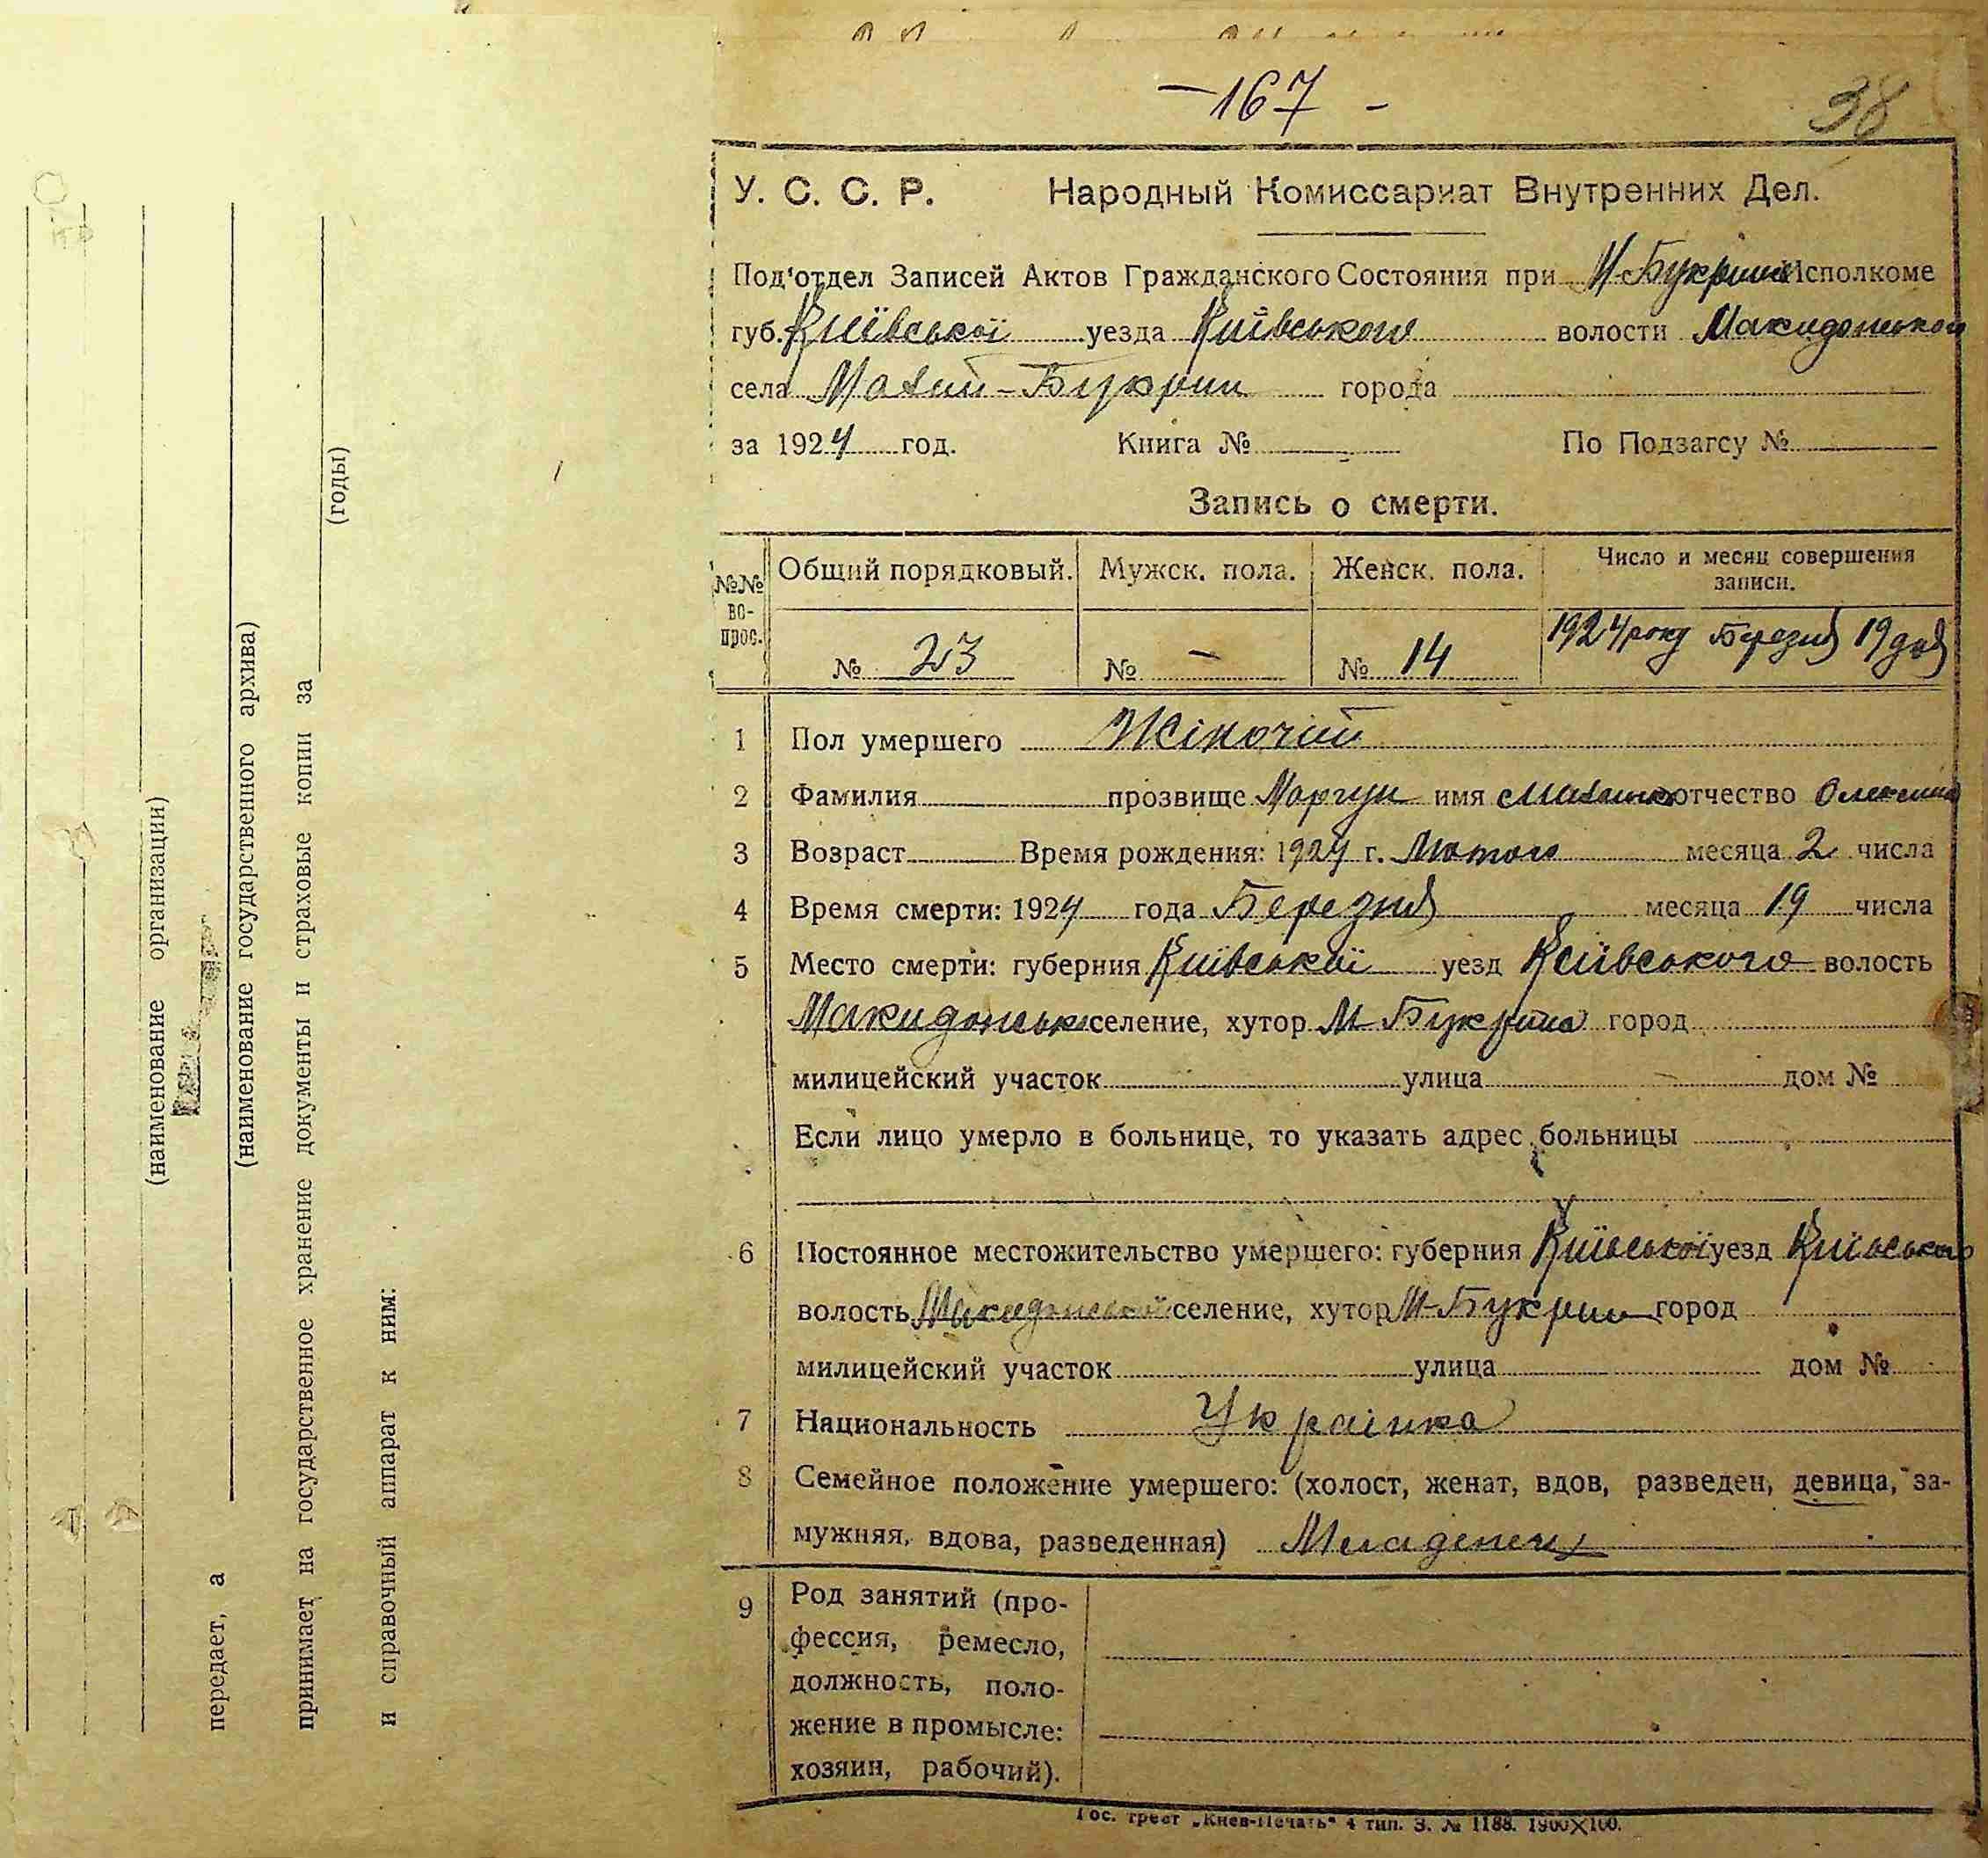 -167-
38
У. С. С. Р. Народный Комиссариат Внутренних Дел.
Под'отдел Записей Актов Гражданского Состояния при М-Букрин Исполкоме
губ. Київської уезда Київського волости Макидонської
села Малий-Букрин города
за 1924 год. Книга № По Подзагсу №
Запись о смерти.
№№ во-прос. Общий порядковый. Мужск. пола. Женск. пола. Число и месяц совершения записи.
№ 23 № — № 14 1924 року Березня 19 дня
1 Пол умершего Жіночий
2 Фамилия прозвище Моргун имя отчество
3 Возраст Время рождения: 1924 г. Лютого месяца 2 числа
4 Время смерти: 1924 года Березня месяца 19 числа
5 Место смерти: губерния Київської уезд Київського волость
Макидонськ селение, хутор М-Букрина город
милицейский участок улица дом №
Если лицо умерло в больнице, то указать адрес больницы
6 Постоянное местожительство умершего: губерния Київської уезд Київського
волость Макидонської селение, хутор М-Букрин город
милицейский участок улица дом №
7 Национальность Украінка
8 Семейное положение умершего: (холост, женат, вдов, разведен, девица, за-
мужняя, вдова, разведенная) Младенец
9 Род занятий (про-
фессия, ремесло,
должность, поло-
жение в промысле:
хозяин, рабочий).
Гос. трест „Киев-Печать" 4 тип. З. № 1188. 1900×100.
(наименование организации)
передает, а
(наименование государственного архива)
принимает на государственное хранение документы и страховые копии за
(годы)
и справочный аппарат к ним: